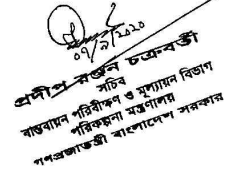 ০৭/৯/২০২০
প্রদীপ রঞ্জন চক্রবর্ত্তী
সচিব
বাস্তবায়ন পরিবীক্ষণ ও মূল্যায়ন বিভাগ
পরিকল্পনা মন্ত্রণালয়
গণপ্রজাতন্ত্রী বাংলাদেশ সরকার